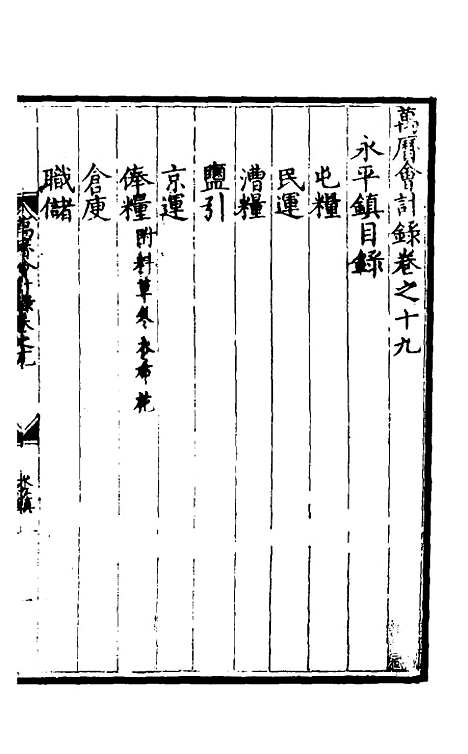 萬曆會計錄卷之十九
永平鎮目錄
屯糧
民運
漕糧
鹽引
京運
俸糧附料草冬衣布花
倉庾
職儲
萬曆會計錄卷之十九
永平鎮
一